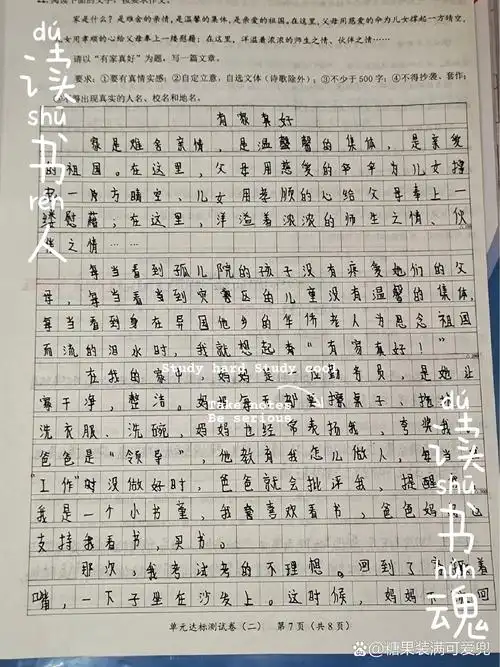 阅读下面的文字，按要求作文。
家是什么？是难舍的亲情，是温馨的集体，是亲爱的祖国。在这里，父母用慈爱的伞为儿女撑起一方晴空，
儿女用孝顺的心给父母奉上一缕慰藉；在这里，洋溢着浓浓的师生之情、伙伴之情……
请以“有家真好”为题，写一篇文章。
要求：①要有真情实感；②自定立意，自选文体（诗歌除外）；③不少于500字；④不得抄袭、套作；
不得出现真实的人名、校名和地名。
有家真好
家是难舍亲情，是温馨的集体，是亲爱
的祖国。在这里，父母用慈爱的伞为儿女撑
一片方晴空、儿女用孝顺的心给父母奉上一
缕慰藉；在这里，洋溢着浓浓的师生之情、伙
之情……
每当看到孤儿院的孩子没有疼爱她们的父
母，每当看当到灾区的儿童没有温馨的集体，
每当看到身在异国他乡的华侨老人为思念祖国
而流的泪水时，我就想起者“有家真好！”
在我的家中，妈妈是一位勤务员，是她让
家干净，整洁。妈妈每天都要擦桌子、拖地
洗衣服、洗碗，妈妈也经常表扬我，夸奖我
爸爸是“领导”，他教育我怎儿做人，每当
“工作”时没做好时，爸爸就会批评我，提醒
我是一个小书童，我喜欢看书，爸爸妈妈
支持我看书，买书。
那次，我考试考的不理想。回到了家 着
嘴，一下子坐在沙发上。这时候，妈妈 回
单元达标测试卷（二） 第7页（共8页）
dú
读
shū
书
rén
人
Study hard Study cool
Take notes
Be serious
dú
读
shū
书
hún
魂
@糖果装满可爱兜